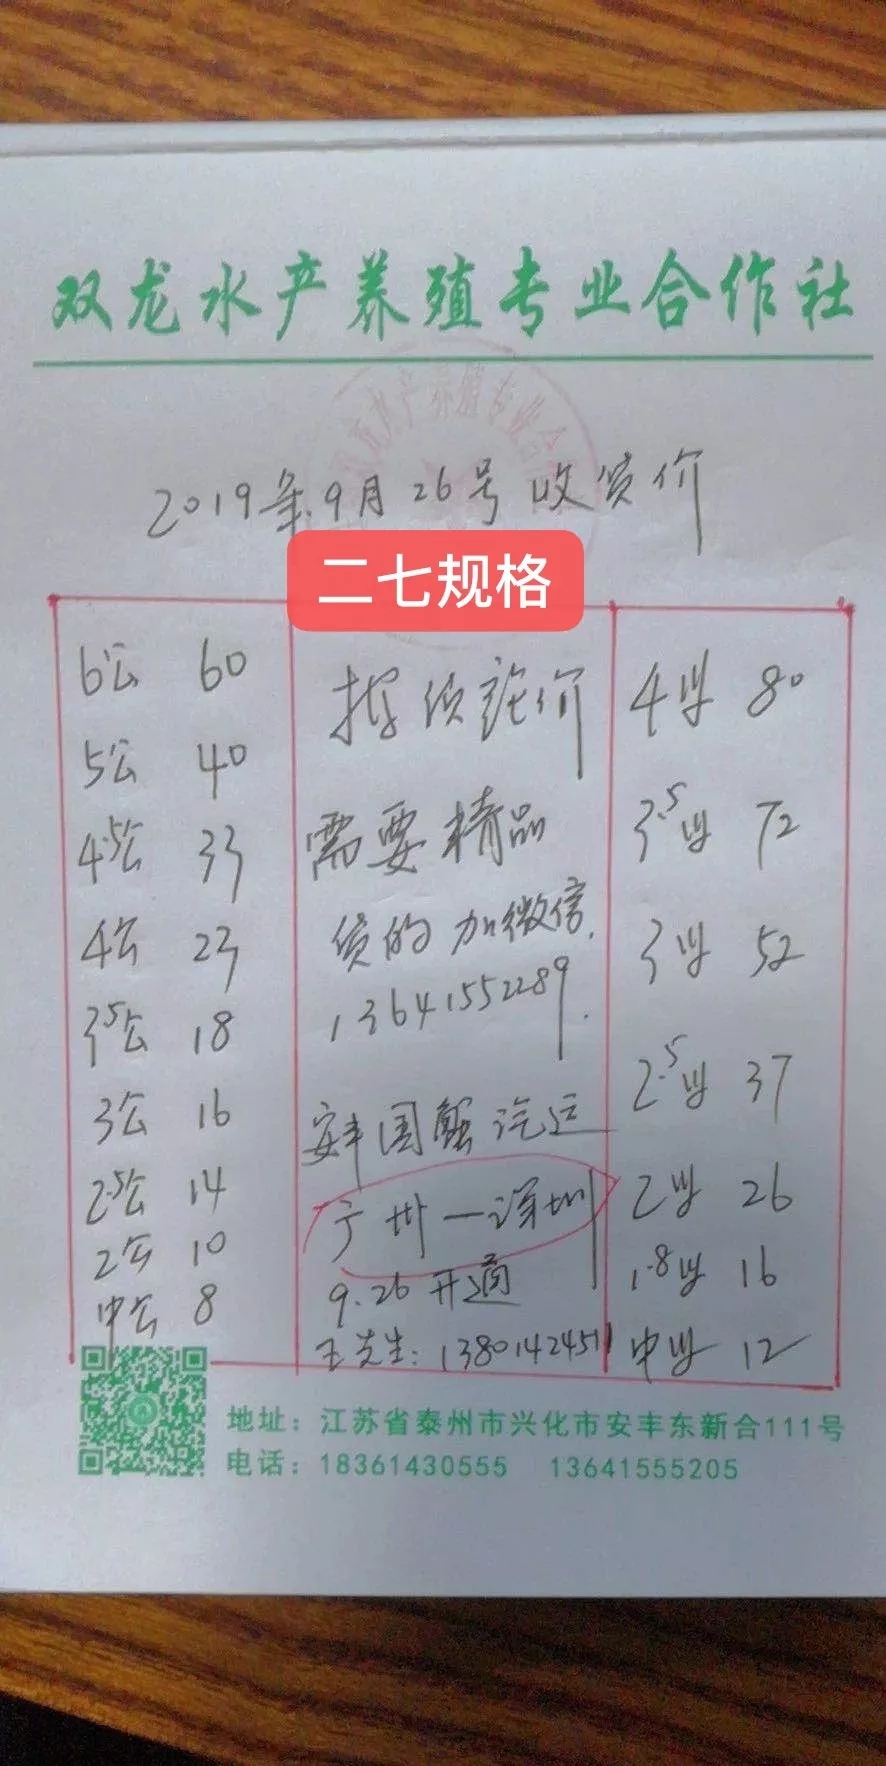 双龙水产养殖专业合作社
2019年.9月26号收货价
二七规格
6公 60
5公 40
4.5公 33
4公 23
3.5公 18
3公 16
2.5公 14
2公 10
中公 8
按质论价
需要精品
货的加微信.
13641552289.
安丰国蟹汽运
广州一深圳
9.26开通
王先生:13801424511
4母 80
3.5母 72
3母 52
2.5母 37
2母 26
1.8母 16
中母 12
地址：江苏省泰州市兴化市安丰东新合111号
电话：18361430555 13641555205